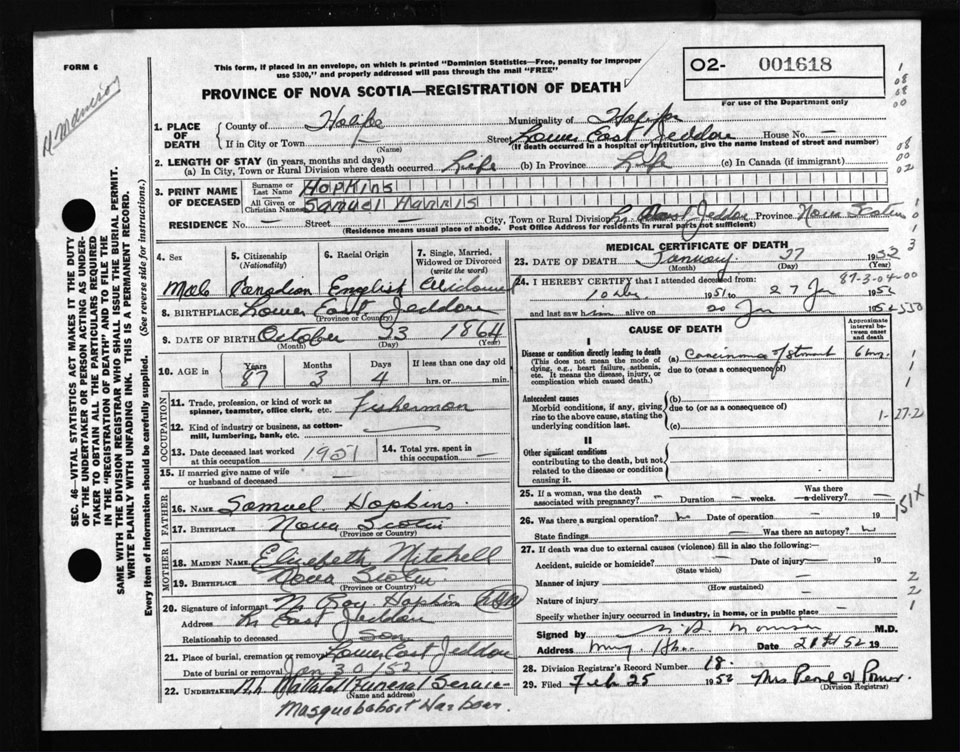 FORM 6
This form, if placed in an envelope, on which is printed "Dominion Statistics—Free, penalty for improper
use $300," and properly addressed will pass through the mail "FREE"
PROVINCE OF NOVA SCOTIA—REGISTRATION OF DEATH
O2- 001618
For use of the Department only
1. PLACE OF DEATH
County of
Municipality of Halifax
If in City or Town (Name)
Street Lower East Jeddore House No. —
(If death occurred in a hospital or institution, give the name instead of street and number)
2. LENGTH OF STAY (in years, months and days)
(a) In City, Town or Rural Division where death occurred Life (b) In Province Life (c) In Canada (if immigrant)
3. PRINT NAME OF DECEASED
Surname or Last Name HOPKINS
All Given or Christian Names SAMUEL HARRIS
RESIDENCE No. — Street — City, Town or Rural Division Lr East Jeddore Province Nova Scotia
(Residence means usual place of abode. Post Office Address for residents in rural parts not sufficient)
4. Sex Male
5. Citizenship (Nationality) Canadian
6. Racial Origin English
7. Single, Married, Widowed or Divorced (write the word) Widower
8. BIRTHPLACE Lower East Jeddore
(Province or Country)
9. DATE OF BIRTH October 23 1864
(Month) (Day) (Year)
10. AGE in Years Months Days If less than one day old
87 3 4 hrs. or min.
OCCUPATION
11. Trade, profession, or kind of work as spinner, teamster, office clerk, etc. Fisherman
12. Kind of industry or business, as cotton-mill, lumbering, bank, etc. —
13. Date deceased last worked at this occupation 1951
14. Total yrs. spent in this occupation —
15. If married give name of wife or husband of deceased
FATHER
16. NAME Samuel Hopkins
17. BIRTHPLACE Nova Scotia
(Province or Country)
MOTHER
18. MAIDEN NAME Elizabeth Mitchell
19. BIRTHPLACE Nova Scotia
(Province or Country)
20. Signature of informant Roy Hopkins
Address Lr East Jeddore
Relationship to deceased Son
21. Place of burial, cremation or removal Lower East Jeddore
Date of burial or removal Jan 30/52
22. UNDERTAKER Funeral Service
(Name and address)
Musquodoboit Harbour.
MEDICAL CERTIFICATE OF DEATH
23. DATE OF DEATH January 27 1952
(Month) (Day) (Year)
24. I HEREBY CERTIFY that I attended deceased from:
87-3-04-00
1951 to 27 Jan 1952
and last saw him alive on 20 Jan 1952
CAUSE OF DEATH
Approximate interval between onset and death
I
Disease or condition directly leading to death (a) Carcinoma of stomach
(This does not mean the mode of dying, e.g., heart failure, asthenia, etc. It means the disease, injury, or complication which caused death.)
due to (or as a consequence of)
Antecedent causes (b)
Morbid conditions, if any, giving rise to the above cause, stating the underlying condition last.
due to (or as a consequence of)
(c)
1-27-2
II
Other significant conditions
contributing to the death, but not related to the disease or condition causing it.
25. If a woman, was the death associated with pregnancy? — Duration — weeks. Was there a delivery? —
151X
26. Was there a surgical operation? No Date of operation — 19
State findings — Was there an autopsy? No
27. If death was due to external causes (violence) fill in also the following:—
Accident, suicide or homicide? — Date of injury — 19
(State which)
Manner of injury —
(How sustained)
Nature of injury —
Specify whether injury occurred in industry, in home, or in public place —
Signed by M.D.
Address Date 52 19
28. Division Registrar's Record Number 18.
29. Filed Feb 25 1952 Mrs Pearl
(Division Registrar)
SEC. 46—VITAL STATISTICS ACT MAKES IT THE DUTY
OF THE UNDERTAKER OR PERSON ACTING AS UNDER-
TAKER TO OBTAIN ALL THE PARTICULARS REQUIRED
IN THE "REGISTRATION OF DEATH" AND TO FILE THE
SAME WITH THE DIVISION REGISTRAR WHO SHALL ISSUE THE BURIAL PERMIT.
WRITE PLAINLY WITH UNFADING INK. THIS IS A PERMANENT RECORD.
Every item of information should be carefully supplied. (See reverse side for instructions.)